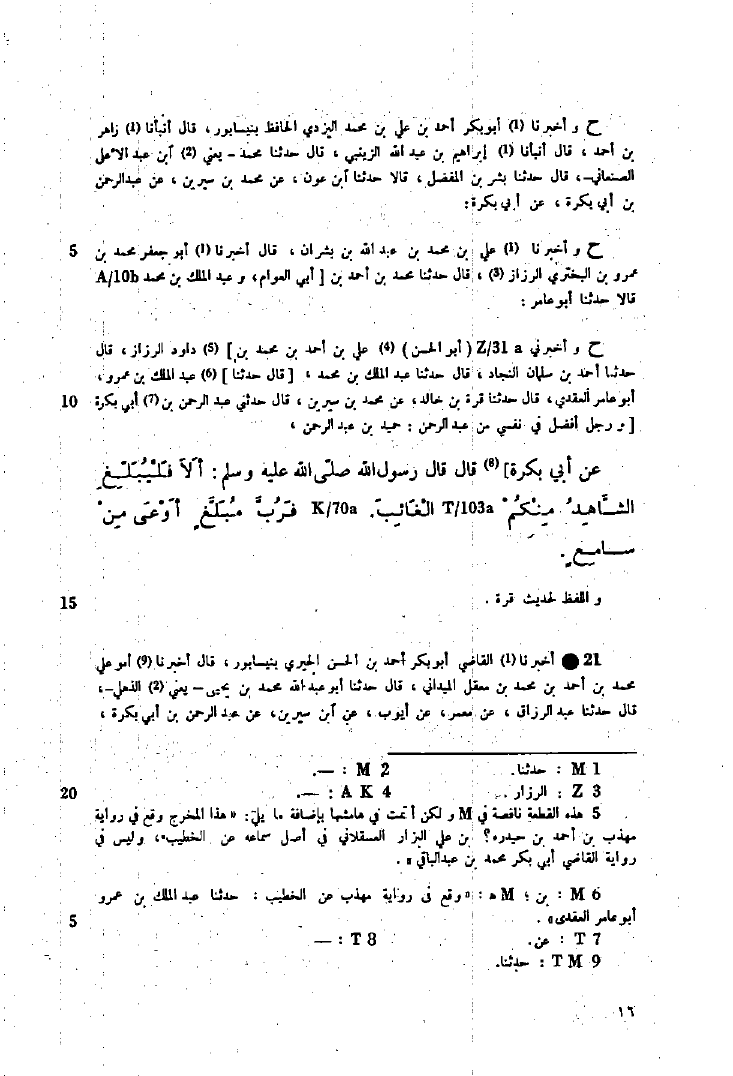 ح و أخبرنا (1) أبوبكر أحمد بن علي بن محمد اليزدي الحافظ بنيسابور ، قال أنبأنا (1) زاهر
بن أحمد ، قال أنبأنا (1) إبراهيم بن عبد الله الزينبي ، قال حدثنا محمد – يعني (2) آبن عبد الأعلى
الصنعاني–، قال حدثنا بشر بن المفضل ، قالا حدثنا آبن عون ، عن محمد بن سيرين ، عن عبدالرحمن
بن أبي بكرة ، عن أبي بكرة :
5 ح و أخبرنا (1) علي بن محمد بن عبد الله بن بشران ، قال أخبرنا (1) أبو جعفر محمد بن
عمرو بن البختري الرزاز (3) ، قال حدثنا محمد بن أحمد بن [ أبي العوام ، و عبد الملك بن محمد A/10b
قالا حدثنا أبو عامر :
ح و أخبرني Z/31 a ( أبو الحسن ) (4) علي بن أحمد بن محمد بن ] (5) داود الرزاز ، قال
حدثنا أحمد بن سلمان النجاد ، قال حدثنا عبد الملك بن محمد ، [ قال حدثنا ] (6) عبد الملك بن عمرو ،
10 أبو عامر العقدي ، قال حدثنا قرة بن خالد ، عن محمد بن سيرين ، قال حدثني عبد الرحمن بن (7) أبي بكرة
[ و رجل أفضل في نفسي من عبد الرحمن : حميد بن عبد الرحمن ،
عن أبي بكرة] (8) قال قال رسول الله صلى الله عليه و سلم : أَلاَ فَلْيُبَلِّغِ
الشَّاهِدُ مِنْكُمْ T/103a الْغَائِبَ. K/70a فَرُبَّ مُبَلَّغٍ أَوْعَى مِنْ
سَامِعٍ.
15 و اللفظ لحديث قرة .
21 ● أخبرنا (1) القاضي أبوبكر أحمد بن الحسن الحيري بنيسابور ، قال أخبرنا (9) أبو علي
محمد بن أحمد بن محمد بن معقل الميداني ، قال حدثنا أبو عبد الله محمد بن يحيى – يعني (2) الذهلي–،
قال حدثنا عبد الرزاق ، عن معمر ، عن أيوب ، عن آبن سيرين ، عن عبد الرحمن بن أبي بكرة ،
1 M : حدثنا. 2 M : —.
20 3 Z : الرزار . 4 A K : —.
5 هذه القطعة ناقصة في M و لكن أتمت في هامشها بإضافة ما يلي : « هذا المخرج وقع في رواية
مهذب بن أحمد بن حيدره ؟ بن علي البزار العسقلاني في أصل سماعه عن الخطيب»، وليس في
رواية القاضي أبي بكر محمد بن عبدالباقي » .
6 M : بن ؛ M ه : « وقع في رواية مهذب عن الخطيب : حدثنا عبد الملك بن عمرو
5 أبو عامر العقدي» .
7 T : عن. 8 T : —
9 T M : حدثنا.
١٦